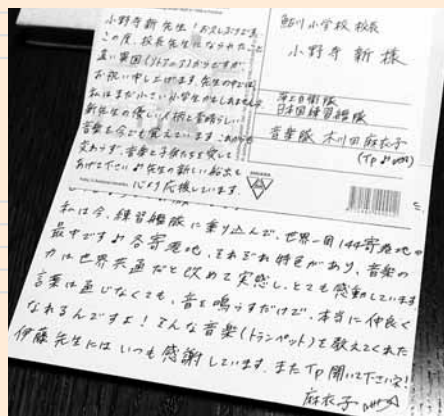 小野寺新先生!お久しぶりです。
この度、校長先生になられたこと
遠い異国(リトアニア)からですが
お祝い申し上げます。先生の中では
私はまだ小さい小学生かもしれませんが
新先生の優しい人柄と素晴らしい
音楽を今でも覚えています。これからも
変わらず、音楽と子供たちを愛して
あげて下さい♪先生の新しい船出も
心より応援しています。
鮎川小学校 校長
小野寺 新 様
海上自衛隊
日本国練習艦隊
音楽隊 木川田麻衣子
(Tp♪)
私は今、練習艦隊に乗り込んで、世界一周14ヶ寄港地の
最中です♪各寄港地、それぞれ特色があり、音楽の
力は世界共通だと改めて実感し、とても感動しています。
言葉は通じなくても、音を鳴らすだけで、本当に仲良く
なれるんですよ!そんな音楽(トランペット)を教えてくれた
伊藤先生にはいつも感謝しています。またTp聞いて下さいネ!
麻衣子